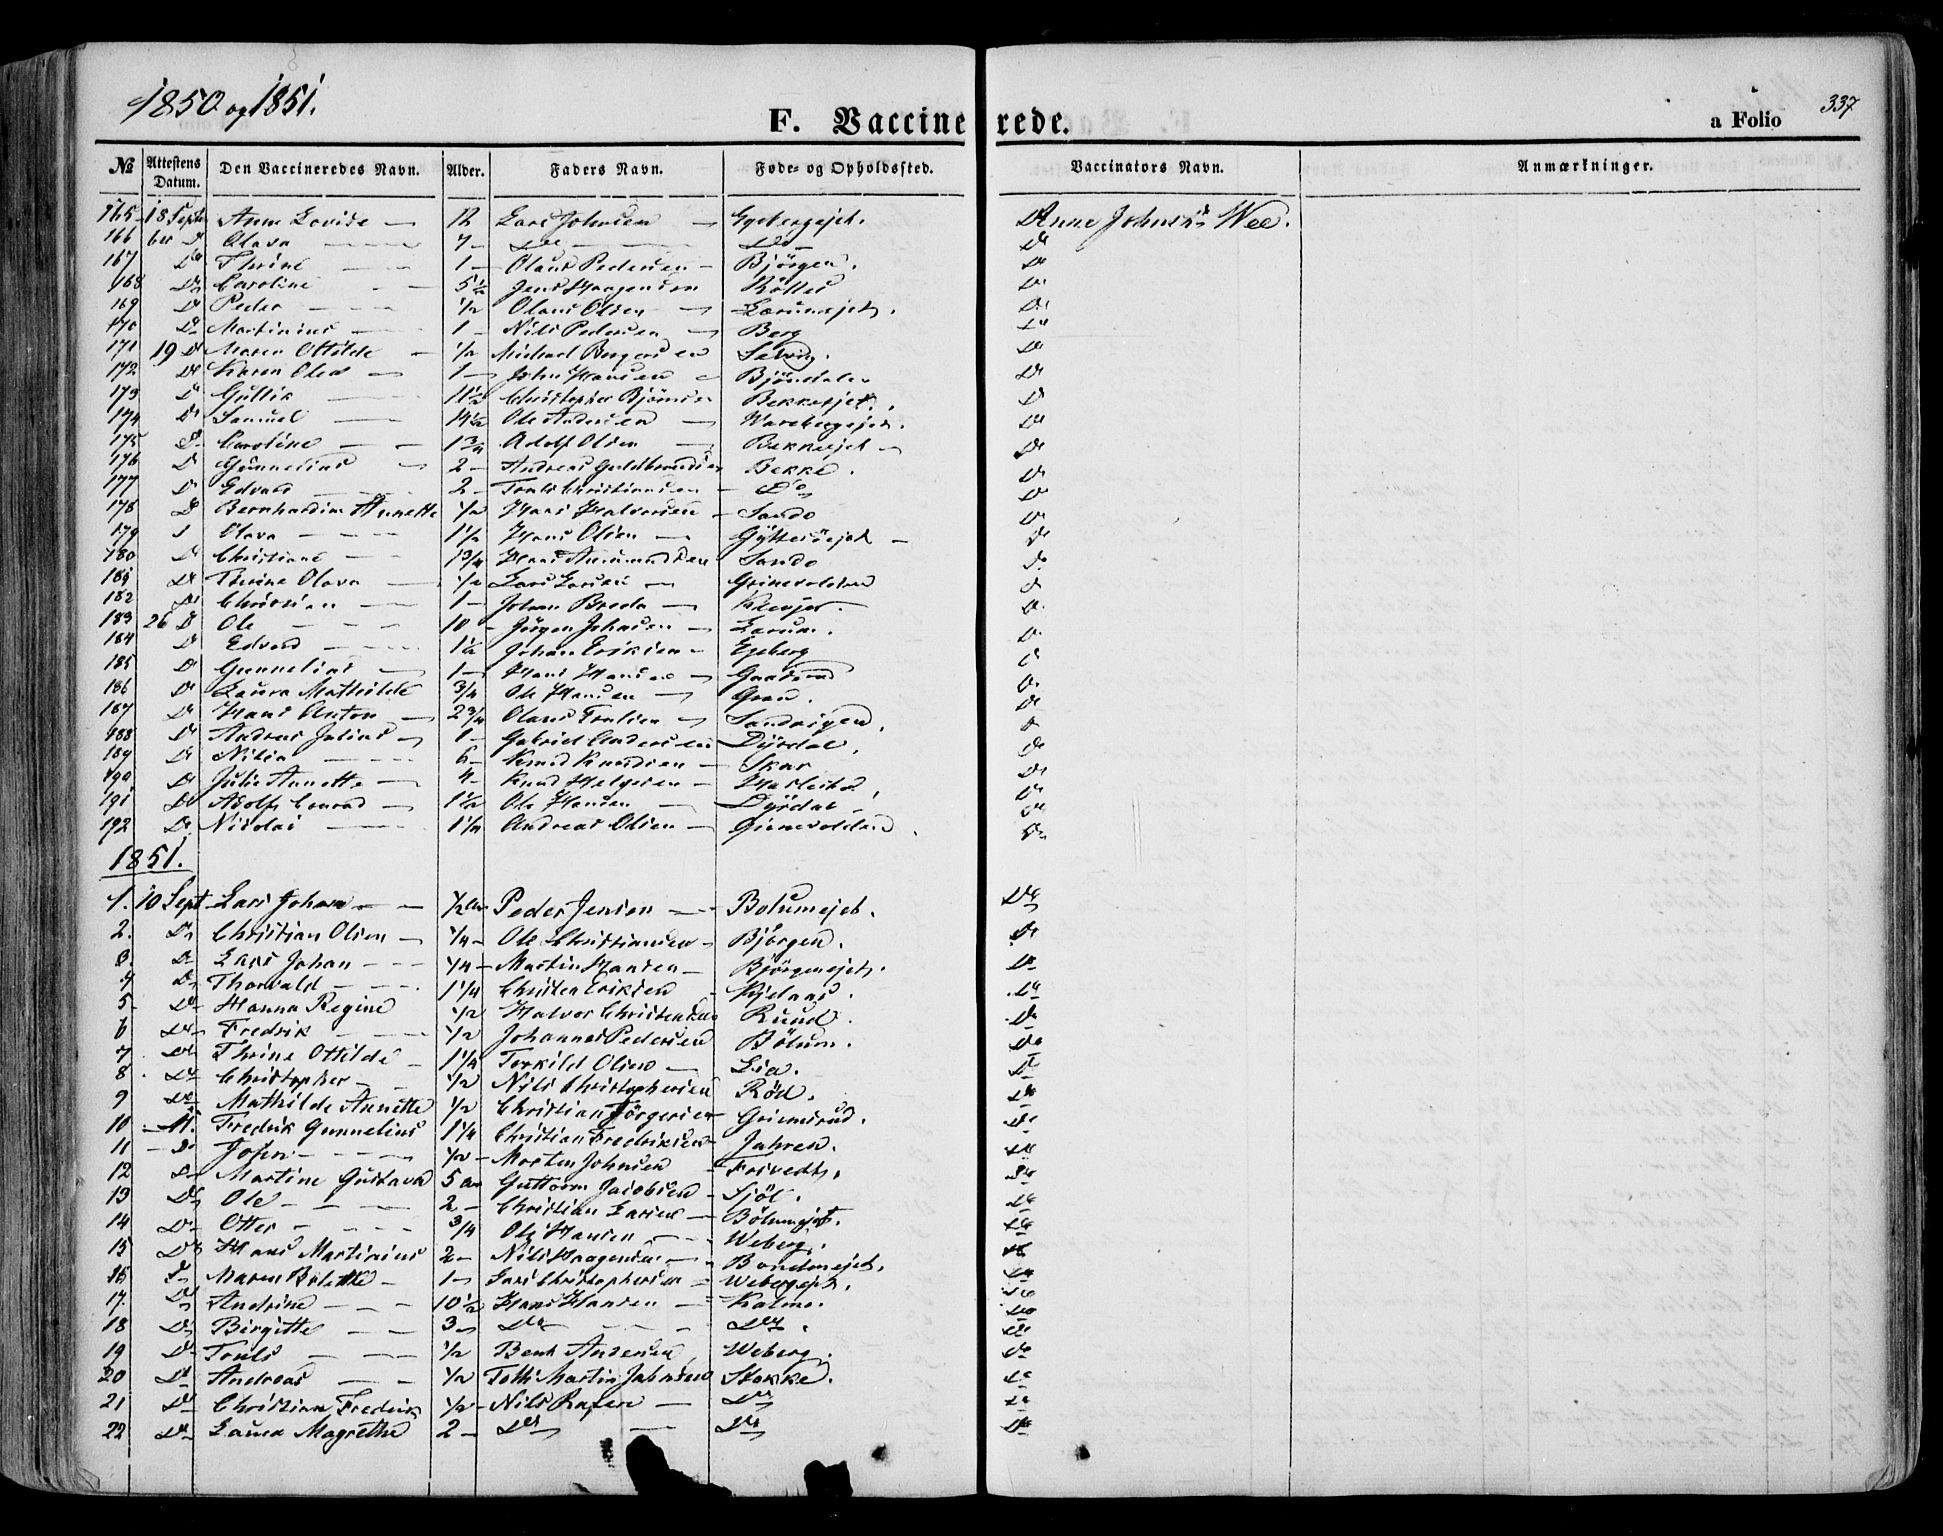 1850 og 1851.
F. Vaccinerede.
a Folio 337
№ Attestens Datum. Den Vaccineredes Navn. Alder. Faders Navn. Føde- og Opholdssted. Vaccinators Navn. Anmærkninger.
165 18 Septbr Anne Lovise 12 Lars Johnsen Anne Johnsd. Wee.
166 Do Olava 7 Do Do Do
167 Do Thrine 1 Olaus Pedersen Bjørgen. Do
168 Do Caroline 5½ Jens Haagensen Do
169 Do Peder ½ Olaus Olsen Do
170 Do Martinius 1 Nils Pedersen Berg Do
171 19 Do Maren Ottilde ½ Michael Do
172 Do Karen Olea 1 John Hansen Bjöndalen Do
173 Do Gullik 11½ Christopher Björnsen Bekkeejet. Do
174 Do Samuel 14½ Ole Andersen Do
175 Do Caroline 1¾ Adolf Olsen Bekkeejet Do
176 Do Gunnelius 2 Andreas Guldbrandsen Bekke. Do
177 Do Edvard 2 Truls Christiansen Do Do
178 Do Bernhardine Annette ½ Hans Halvorsen Sando Do
179 Olava 1½ Hans Olsen Do
180 Do Christiane 1¾ Hans Amundsen Sando Do
181 Do Thrine Olava ½ Lars Larsen Do
182 Do Christian 1 Johan Breda Do
183 26 Do Ole 10 Jörgen Johnsen Do
184 Do Edvard 1½ Johan Eriksen Egeberg Do
185 Do Gunnelius 1 Hans Hansen Do
186 Do Laura Mathilde ¾ Ole Hansen Gran. Do
187 Do Hans Anton 2¾ Olaus Trulsen Sandvigen. Do
188 Do Andreas Julius 1 Gabriel Andersen Dyrdal. Do
189 Do 6 Knud Knudsen Skar Do
190 Do Julie Annette 4 Knud Helgesen Do
191 Do Adolf Conrad 1½ Ole Hansen Dyrdal Do
192 Do Nicolai 1½ Andreas Olsen Do
1851.
1. 10 Sept Lars Johan ½ Peder Jensen Bolumejet. Do
2. Do Christian Olsen ¼ Ole Christiansen Bjørgen. Do
3. Do Lars Johan ¼ Martin Hansen Bjørgenejet. Do
4 Do Thorvald 1¼ Christen Eriksen Do
5 Do Hanna Regine ½ Halvor Christensen Ruud. Do
6 Do Fredrik ½ Johannes Pedersen Bölum. Do
7 Do Thrine Ottilde 1¼ Torkild Olsen Lia. Do
8 Do Christopher ½ Nils Christophersen Röd. Do
9 Do Mathilde Annette ½ Christian Jörgensen Grimsrud. Do
10 11. Fredrik Gunnelius 1¼ Christian Fredriksen Jahren. Do
11 Do Josen ½ Morten Johnsen Do
12 Do Martine Gustava 5 Guttorm Jacobsen Sjöl. Do
13 Do Ole 2 Christian Larsen Bölumejet. Do
14 Do Otter ¾ Ole Hansen Weberg. Do
15 Do Hans Martinius 2 Nils Haagensen Do
16 Do Maren 1 Lars Christophersen Webergejet. Do
17. Do Andrine 10½ Hans Hansen Do
18 Do Birgitte 3 Do Do Do
19 Do Truls ½ Bent Andersen Weberg. Do
20 Do Andreas ½ Martin Johnsen Stokke. Do
21 Do Christian Fredrik ½ Nils Do Do
22 Do Laura Magrethe 2 Do Do Do